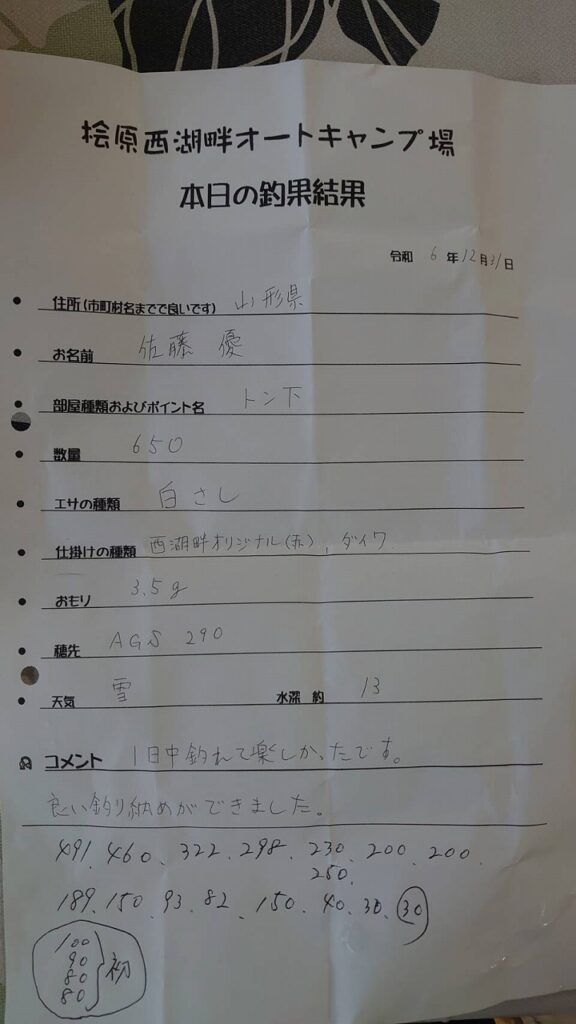 桧原西湖畔オートキャンプ場
本日の釣果結果
令和 6 年 12 月 31 日
住所(市町村名までで良いです) 山形県
お名前 佐藤 優
部屋種類およびポイント名 トン下
数量 650
エサの種類 白さし
仕掛けの種類 西湖畔オリジナル(赤)、ダイワ
おもり 3.5g
穂先 AGS 290
天気 雪 水深 約 13
コメント 1日中釣れて楽しかったです。
良い釣り納めができました。
491、460、322、298、230、200、200、
250、
189、150、93、82、150、40、30、30
100
90
80
80
初